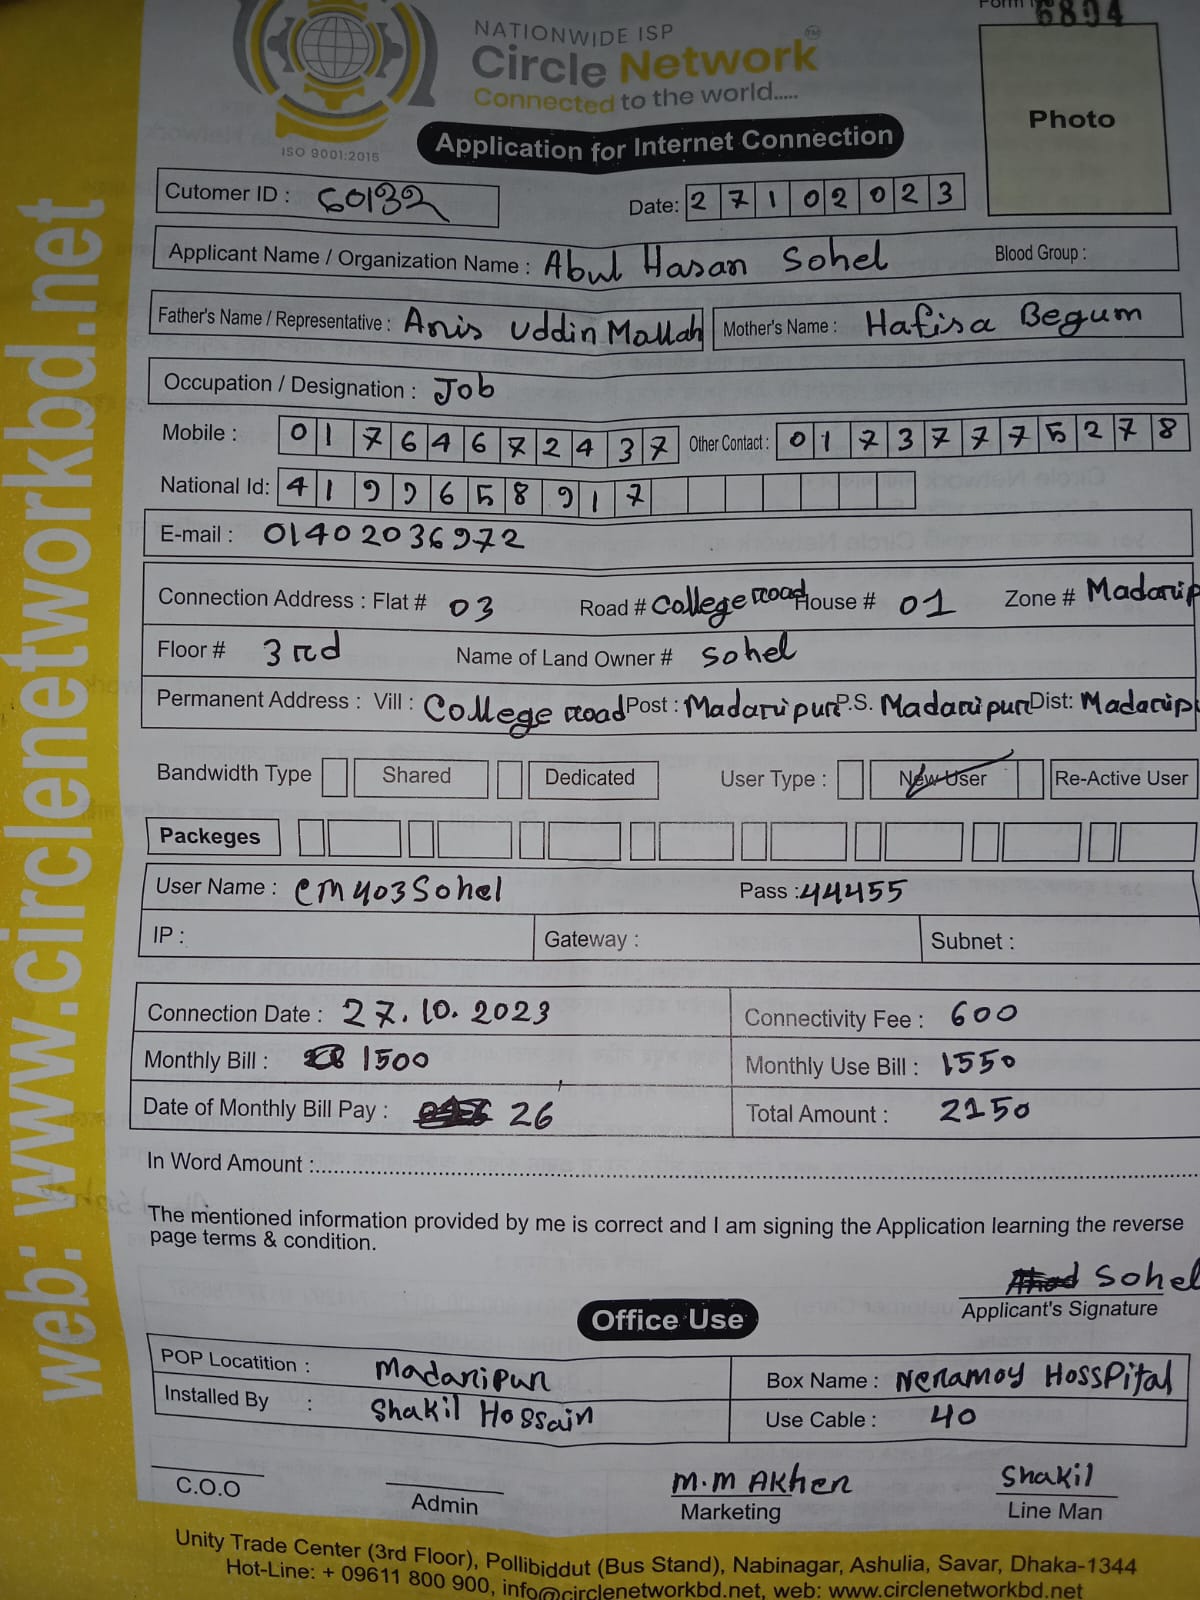 Form No 6804
NATIONWIDE ISP
Circle Network™
Connected to the world.....
ISO 9001:2015
Photo
Application for Internet Connection
Cutomer ID : 60132
Date: 27102023
Applicant Name / Organization Name : Abul Hasan Sohel Blood Group :
Father's Name / Representative : Anis Uddin Mollah Mother's Name : Hafisa Begum
Occupation / Designation : Job
Mobile : 01764672437 Other Contact : 01737775278
National Id: 4199658917
E-mail : 01402036972
Connection Address : Flat # 03 Road # College road House # 01 Zone # Madarip
Floor # 3rd Name of Land Owner # Sohel
Permanent Address : Vill : College road Post : Madaripur P.S. Madaripur Dist: Madarip
Bandwidth Type Shared Dedicated User Type : New User Re-Active User
Packeges
User Name : cm403Sohel Pass : 44455
IP : Gateway : Subnet :
Connection Date : 27.10.2023 Connectivity Fee : 600
Monthly Bill : 1500 Monthly Use Bill : 1550
Date of Monthly Bill Pay : 26 Total Amount : 2150
In Word Amount :
The mentioned information provided by me is correct and I am signing the Application learning the reverse
page terms & condition.
Sohel
Applicant's Signature
Office Use
POP Locatition : Madaripur Box Name : Neramoy HossPital
Installed By : Shakil Hossain Use Cable : 40
M.M Akher Shakil
C.O.O Admin Marketing Line Man
Unity Trade Center (3rd Floor), Pollibiddut (Bus Stand), Nabinagar, Ashulia, Savar, Dhaka-1344
Hot-Line: + 09611 800 900, info@circlenetworkbd.net, web: www.circlenetworkbd.net
web: www.circlenetworkbd.net